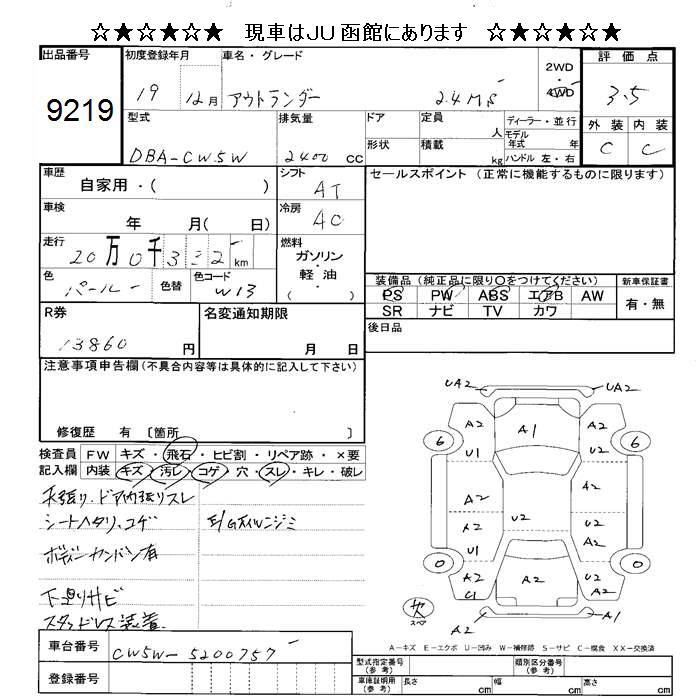 ☆★☆★☆★ 現車はJU函館にあります ☆★☆★☆★
出品番号 初度登録年月 車名・グレード 2WD ・ 4WD 評価点
9219 19 12月 アウトランダー 2.4 MS 3.5
型式 排気量 ドア 定員 人 ディーラー・並行 外装 内装
DBA-CW5W 2400 cc 形状 積載 kg モデル年式 年 ハンドル 左・右 C C
車歴 シフト セールスポイント (正常に機能するものに限ります)
自家用・( ) AT
車検 年 月( 日) 冷房 AC
走行 20万0千332 km 燃料 ガソリン・軽油・( )
色 パール 色替 色コード W13
装備品(純正品に限り○をつけてください) 新車保証書
PS PW ABS エアB AW 有・無
SR ナビ TV カワ
R券 13860 円 名変通知期限 月 日 後日品
注意事項申告欄(不具合内容等は具体的に記入して下さい)
修復歴 有 〔箇所 〕
検査員 FW キズ・飛石・ヒビ割・リペア跡・×要
記入欄 内装 キズ・汚レ・コゲ・穴・スレ・キレ・破レ
天張り、ドア内張りスレ
シートヘタリ、コゲ E/Gオイルニジミ
ボディーカンバン有
下廻りサビ
スタッドレス装着
UA2 UA2
A2 A1 A2
6 U1 U2 6
A2 A2
A2 U2 A2
U1 U2
0 0
A2 A2 U2
U1 A2
スペア A2 A1
A-キズ E-エクボ U-凹み W-補修跡 S-サビ C-腐食 XX-交換済
車台番号 CW5W-5200757
登録番号
型式指定番号(参考) 類別区分番号(参考)
車庫証明用(参考) 長さ cm 幅 cm 高さ cm